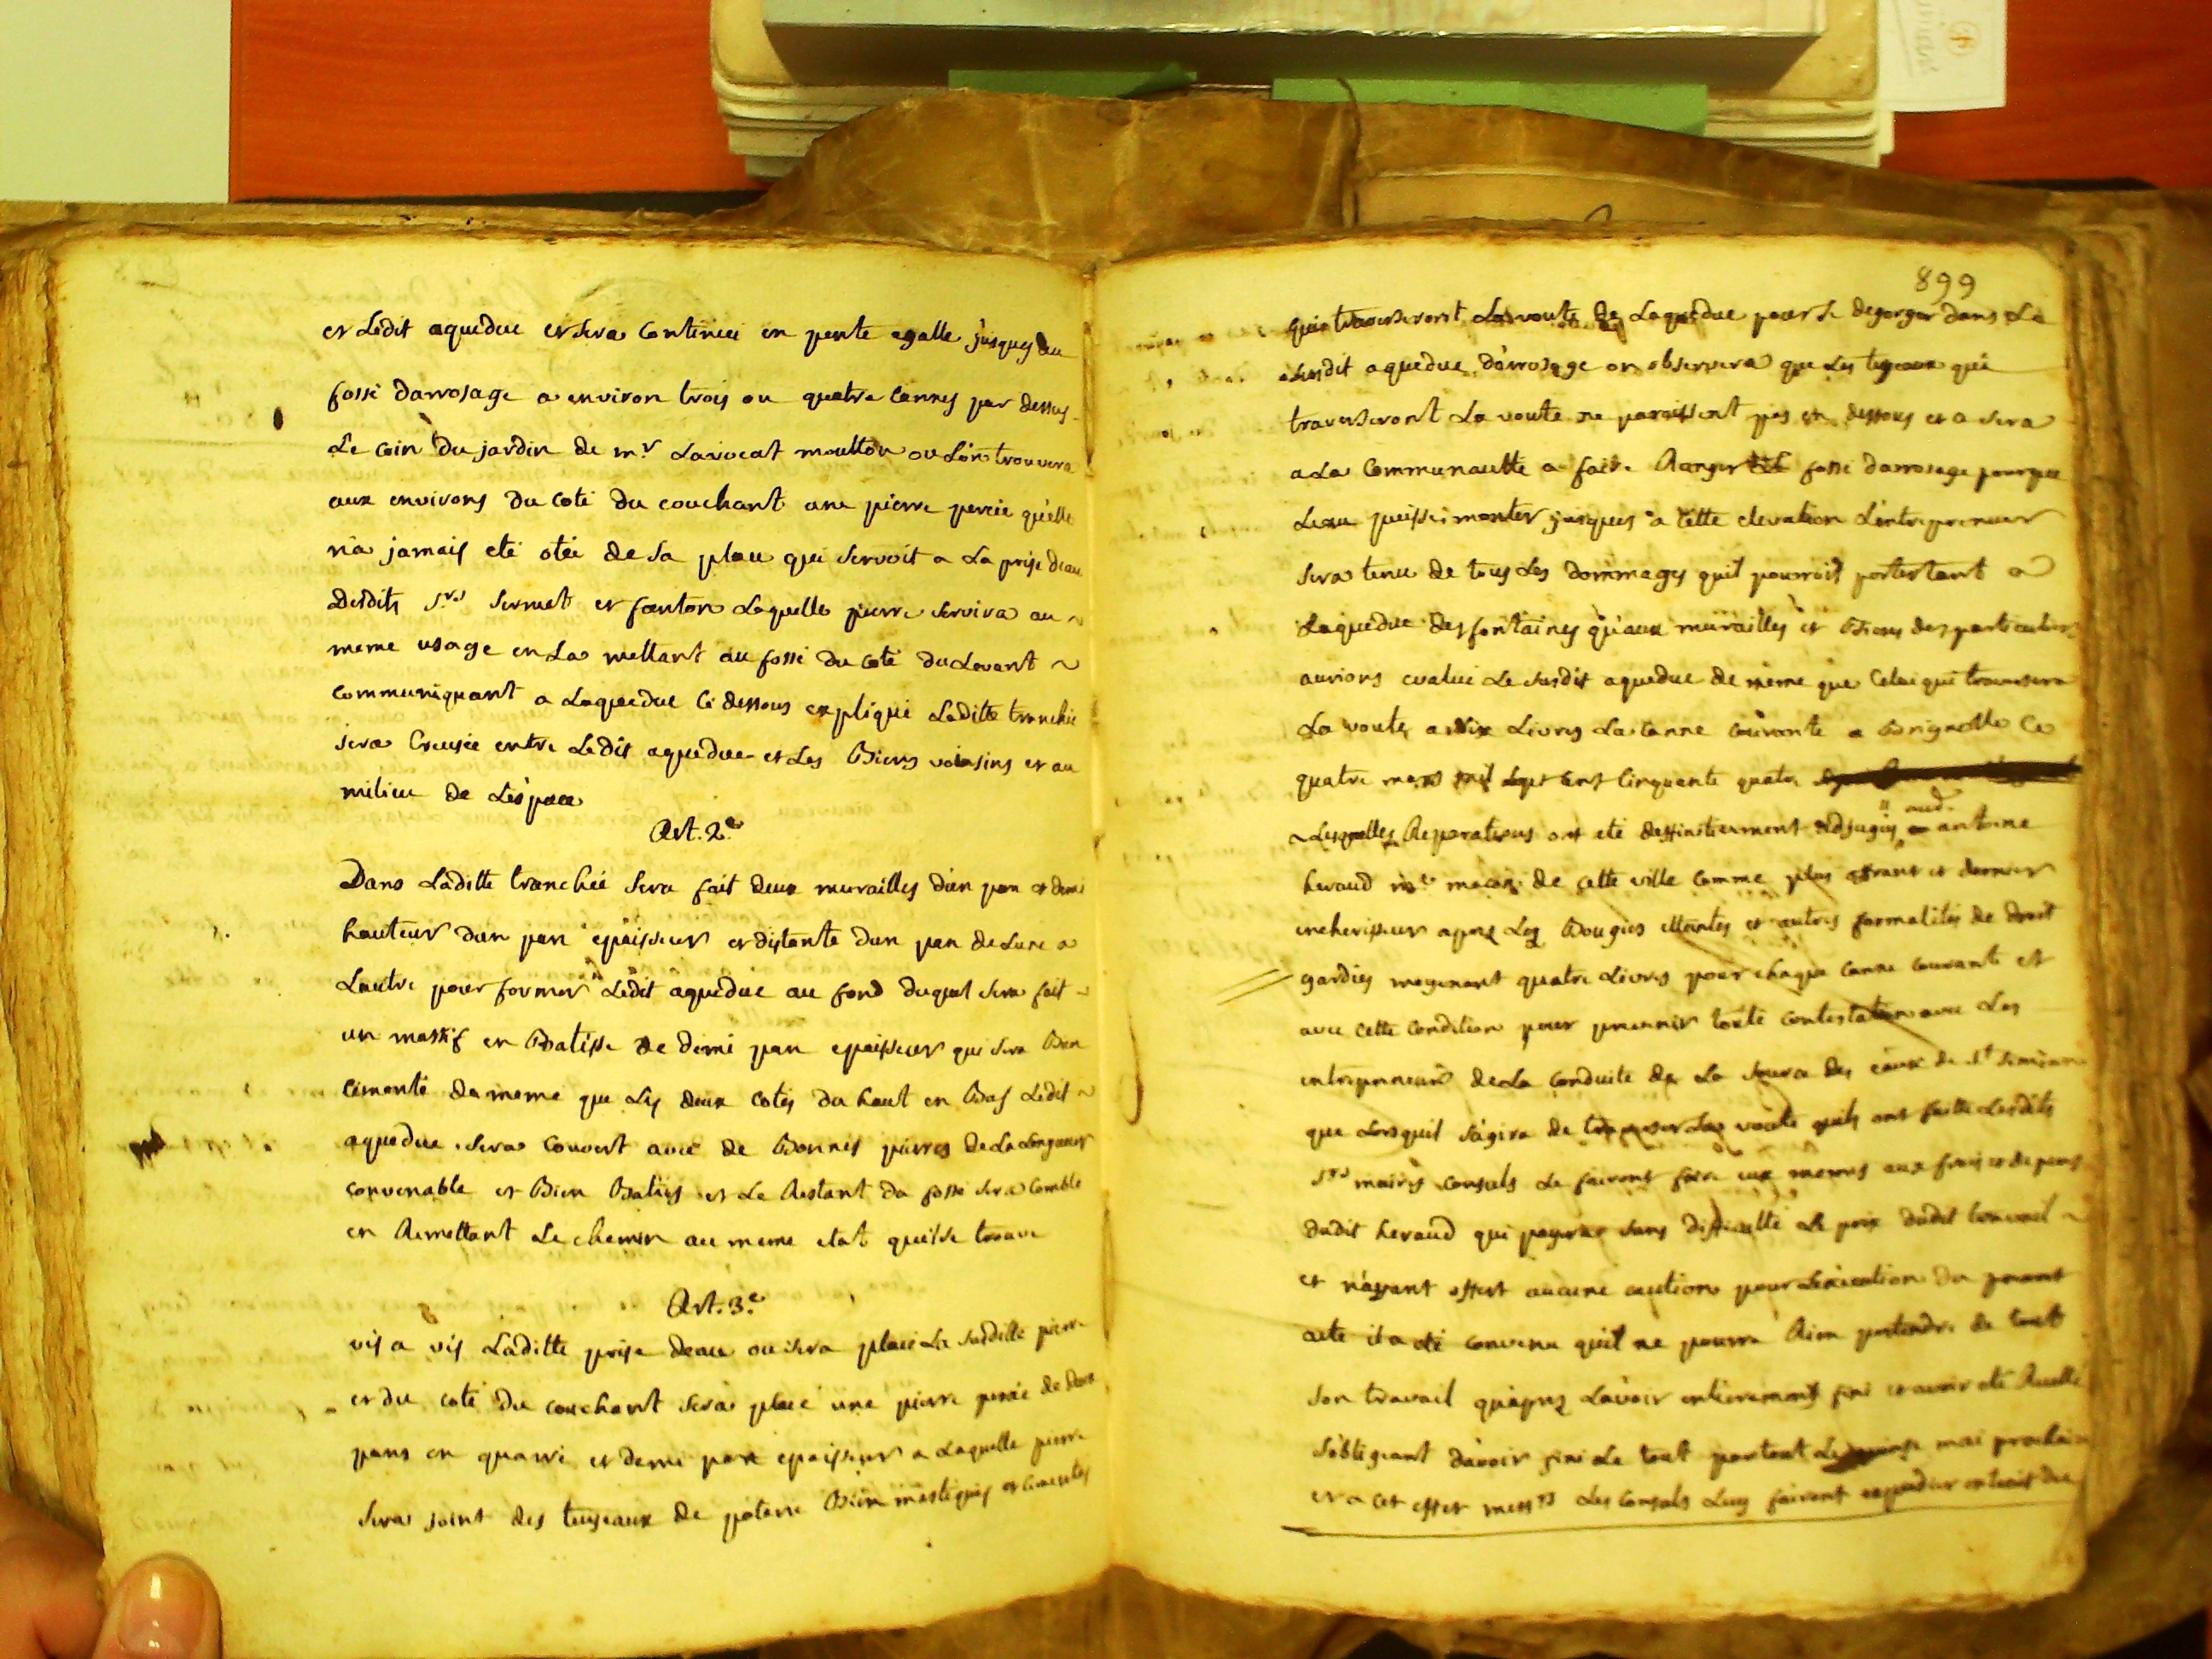 et Ledit aqueduc et sera Continué en pente egalle jusques au
fossé darrosage a environ trois ou quatre Cannes par dessus
Le Coin du jardin de mr Lavocat moutton ou L'on trouvera
aux environs du Coté du couchant une pierre percée qu'elle
n'a jamais eté otée de sa place qui servoit a La prise deau
Desdits Srs et fanton Laquelle pierre servira au
meme usage en La mettant au fossé du coté du Levant
Communiquant a Laqueduc Ci dessous expliqué Laditte tranchée
sera Creusée entre Ledit aqueduc et Les Biens voisins et au
milieu de Lespace
Art. 2e
Dans Laditte tranchée sera fait deux murailles d'un pan et demi
hauteur d'un pan epaisseur et distante d'un pan de Lune a
Lautre pour former Ledit aqueduc au fond duquel sera fait
un massif en Batisse de demi pan epaisseur qui sera Bien
Cimenté de meme que Les deux Cotés du haut en Bas Ledit
aqueduc sera Couvert avec de Bonnes pierres de La Longueur
Convenable et Bien Baties et Le Restant du fossé sera Comblé
en Remettant Le chemin au meme etat qu'il se trouve
Art. 3e
vis a vis Laditte prise deau ou sera placé La susditte pierre
et du coté du couchant sera placé une pierre percée de deux
pans en quarré et demi pan epaisseur a Laquelle pierre
sera joint des tuyeaux de poterie Bien mastiqués et Cimentés
899
qui traverseront La voute de Laqueduc pour se degorger dans Le
susdit aqueduc d'arrosage on observera que Les tuyeaux qui
traverseront La voute ne paroissent pas en dessous et a sera
a La Communautté a faire Ranger fossé darrosage pour que
Leau puisse monter jusques a Cette elevation L'entrepreneur
sera tenu de tous Les dommages quil pourroit porter tant a
Laqueduc des fontaines qu'aux murailles et Biens des particuliers
aurions evalué Le susdit aqueduc de même que Celui qui traversera
La voute a dix Livres La Canne Courante a Brignolle Ce
quatre mars mil sept cens Cinquante quatre
Lesquelles Reparations ont eté deffinitivement adjugées aud. antoine
heraud me maçon de Cette ville Comme plus offrant et dernier
encherisseur apres Les Bougies etteintes et autres formalités de droit
gardées moyenant quatre Livres pour chaque Canne Courante et
avec Cette Condition pour prevenir toute Contestation avec Les
entrepreneurs de La Conduite de La source des eaux de St
que Lorsquil s'agira de traverser La voute quils ont faitte Lesdits
Srs maires Consuls Le fairont faire eux memes aux frais et depens
dudit heraud qui payera sans difficulté Le prix dudit travail
et n'ayant offert aucune caution pour L'execution du present
acte il a eté Convenu quil ne pourra Rien pretendre de tout
son travail qu'apres L'avoir entierement fini et avoir eté Recetté
s'obligeant d'avoir fini Le tout par tout Le mai prochain
et a cet effet messrs Les Consuls Luy fairont expedier extrait du